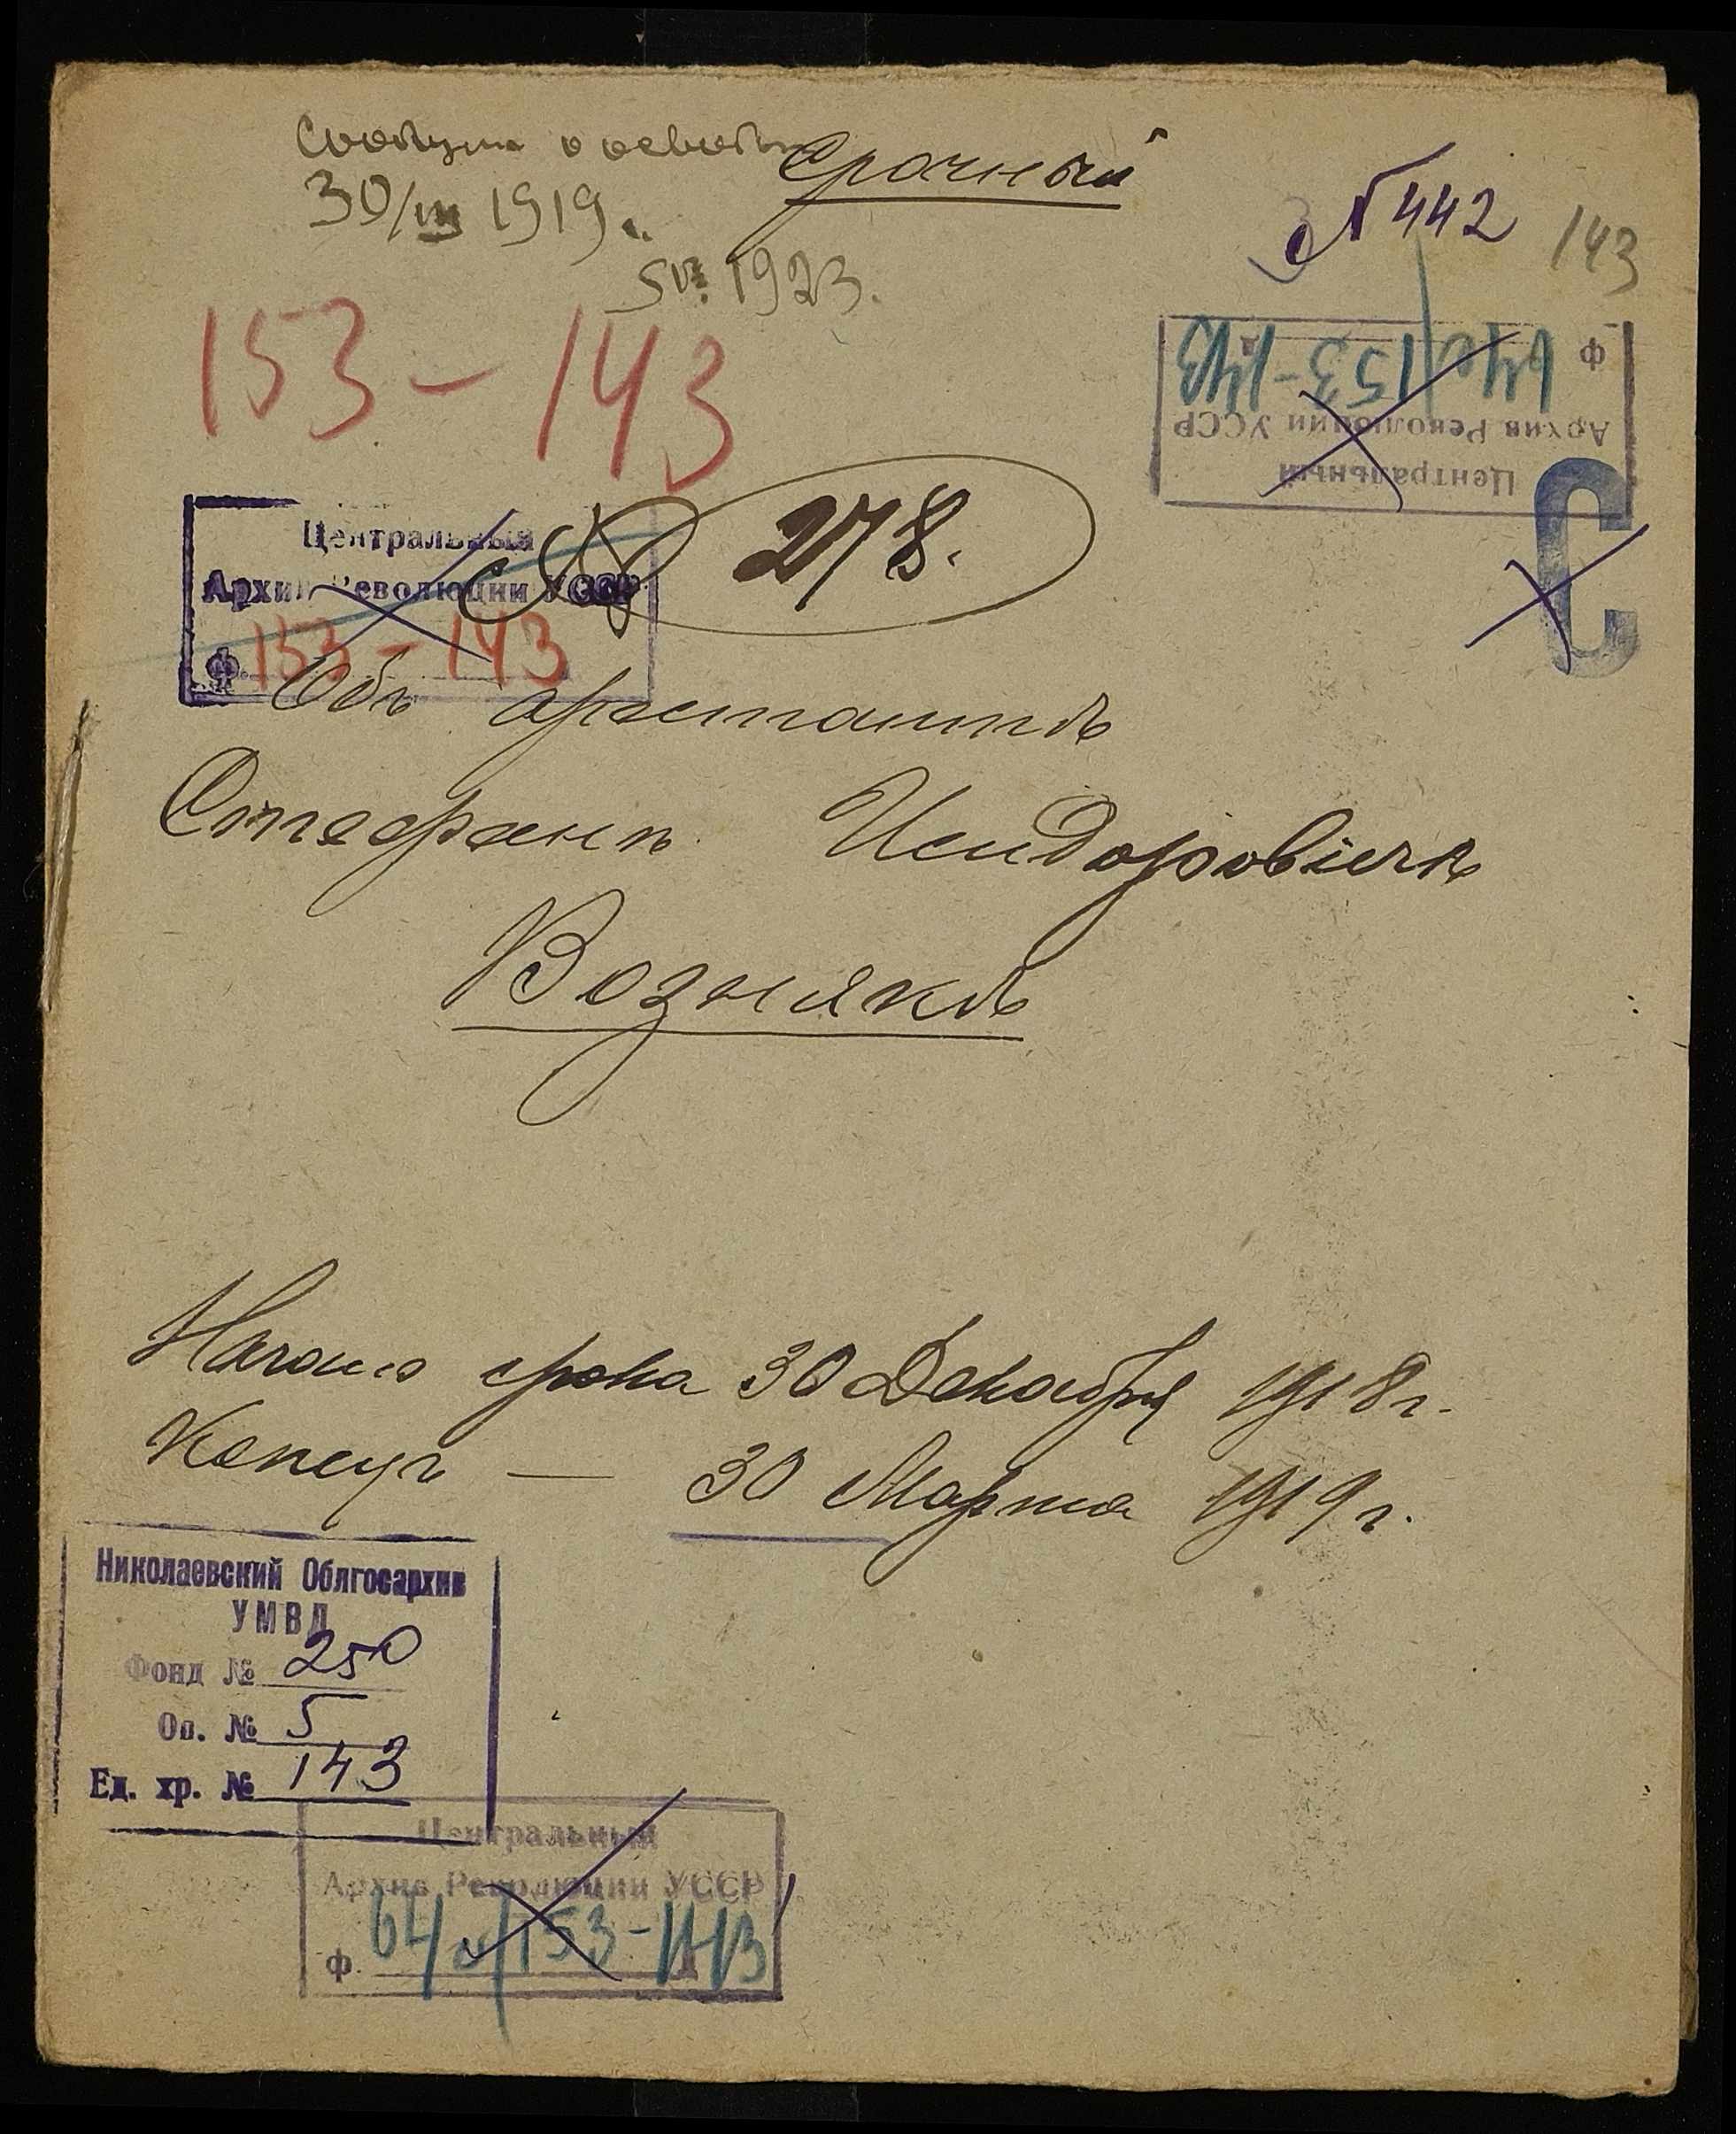 срочный
30/III 1919г.
1923.
№ 442
143
153–143
Ф 64с/153-143
Архив Революции УССР
Центральный
Центральный
Архив Революции УССР
Ф. 153–143
С
№ 278.
Объ арестантѣ
Стефанѣ Исидоровичѣ
Вознякѣ
Начало срока 30 Декабря 1918 г.
Конецъ — 30 Марта 1919 г.
Николаевский Облгосархив
УМВД
Фонд № 250
Оп. № 5
Ед. хр. № 143
Центральный
Архив Революции УССР
Ф. 64с/153-143